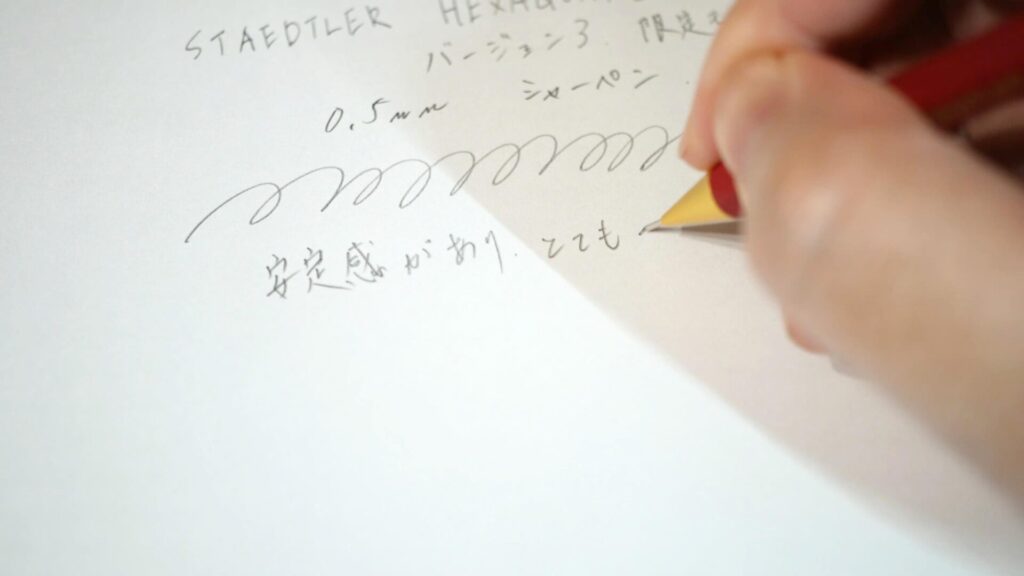 STAEDTLER
バージョン3 限定
0.5mm シャーペン
安定感があり、とても